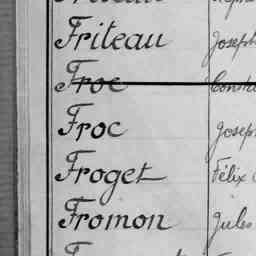 Friteau Joseph
Froc Consta
Froc Joseph
Froget Félix
Fromon Jules